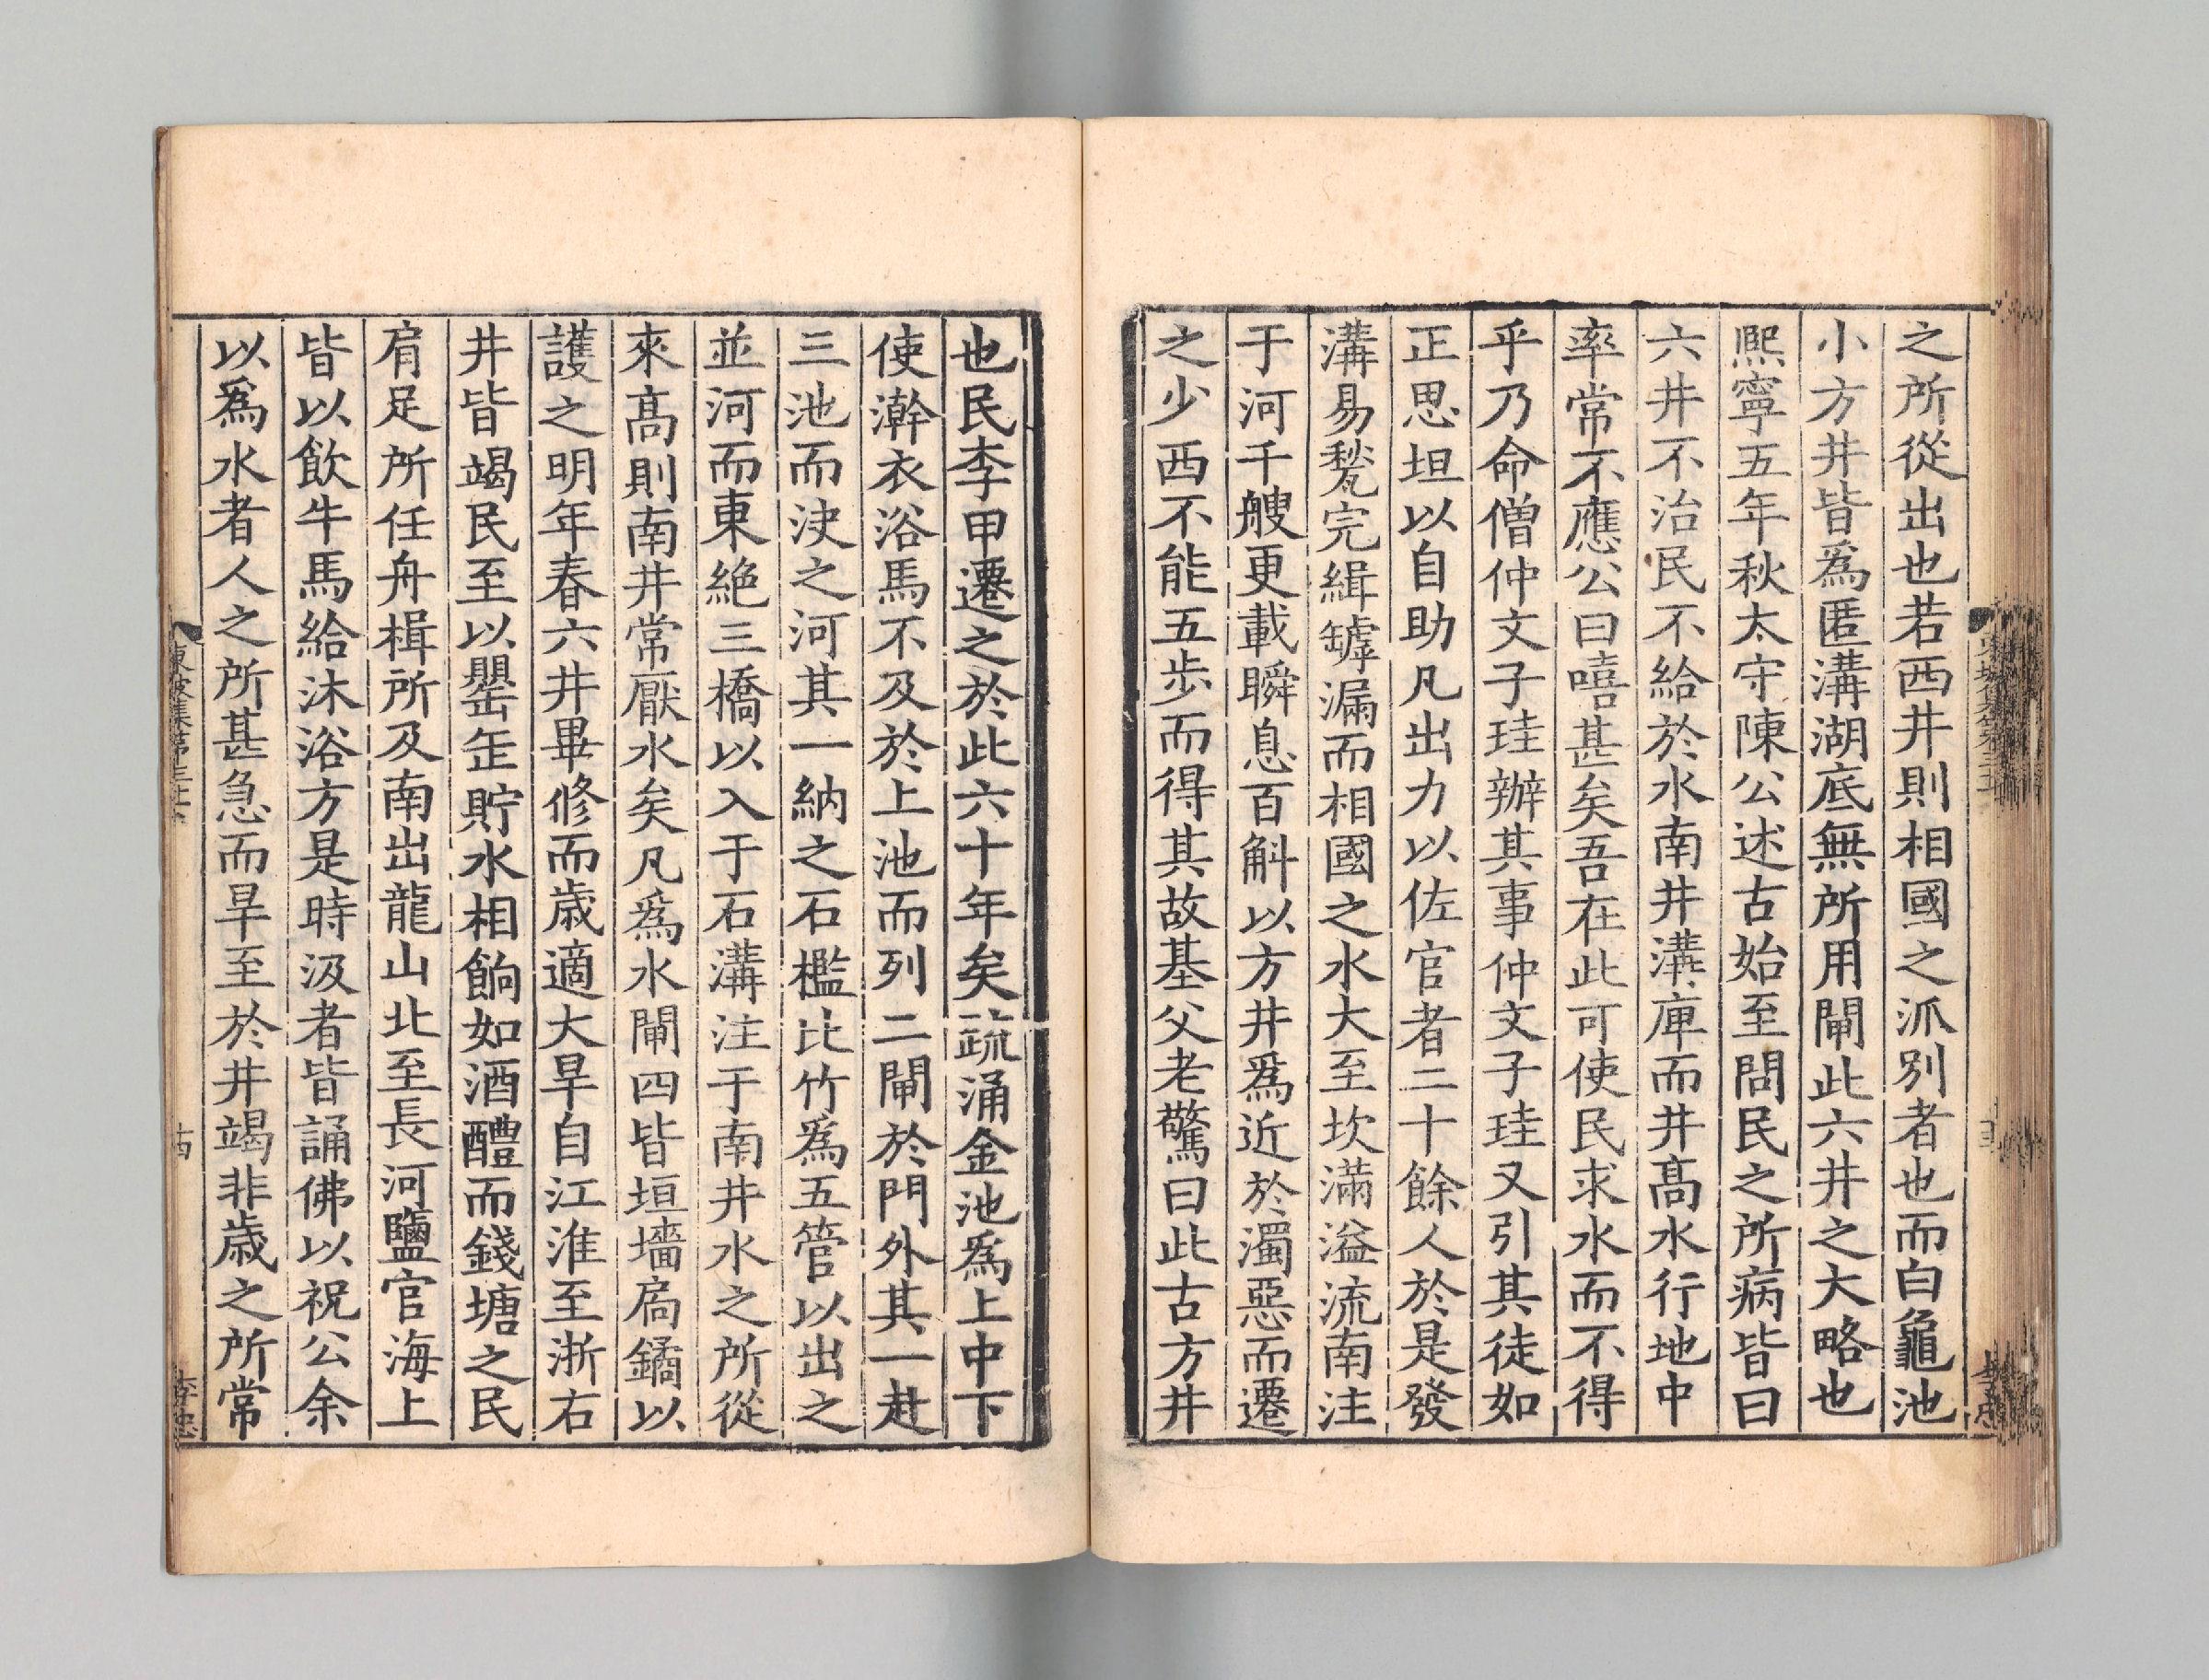 之所從出也若西井則相國之派別者也而白龜池
小方井皆爲匿溝湖底無所用閘此六井之大略也
熈寧五年秋太守陳公述古始至問民之所病皆曰
六井不治民不給於水南井溝庳而井髙水行地中
率常不應公曰嘻甚矣吾在此可使民求水而不得
乎乃命僧仲文子珪辦其事仲文子珪又引其徒如
正思坦以自助凡出力以佐官者二十餘人於是發
溝易甃完緝罅漏而相國之水大至坎滿溢流南注
于河千艘更載瞬息百斛以方井爲近於濁惡而遷
之少西不能五步而得其故基父老驚曰此古方井
也民李甲遷之於此六十年矣疏涌金池爲上中下
使澣衣浴馬不及於上池而列二閘於門外其一赴
三池而决之河其一納之石檻比竹爲五管以出之
並河而東絶三橋以入于石溝注于南井水之所從
來髙則南井常厭水矣凡爲水閘四皆垣墻扃鐍以
護之明年春六井畢修而歳適大旱自江淮至浙右
井皆竭民至以罌缶貯水相餉如酒醴而錢塘之民
肩足所任舟楫所及南出龍山北至長河鹽官海上
皆以飲牛馬給沐浴方是時汲者皆誦佛以祝公余
以爲水者人之所甚急而旱至於井竭非歳之所常
東坡集第三十
古
李忠